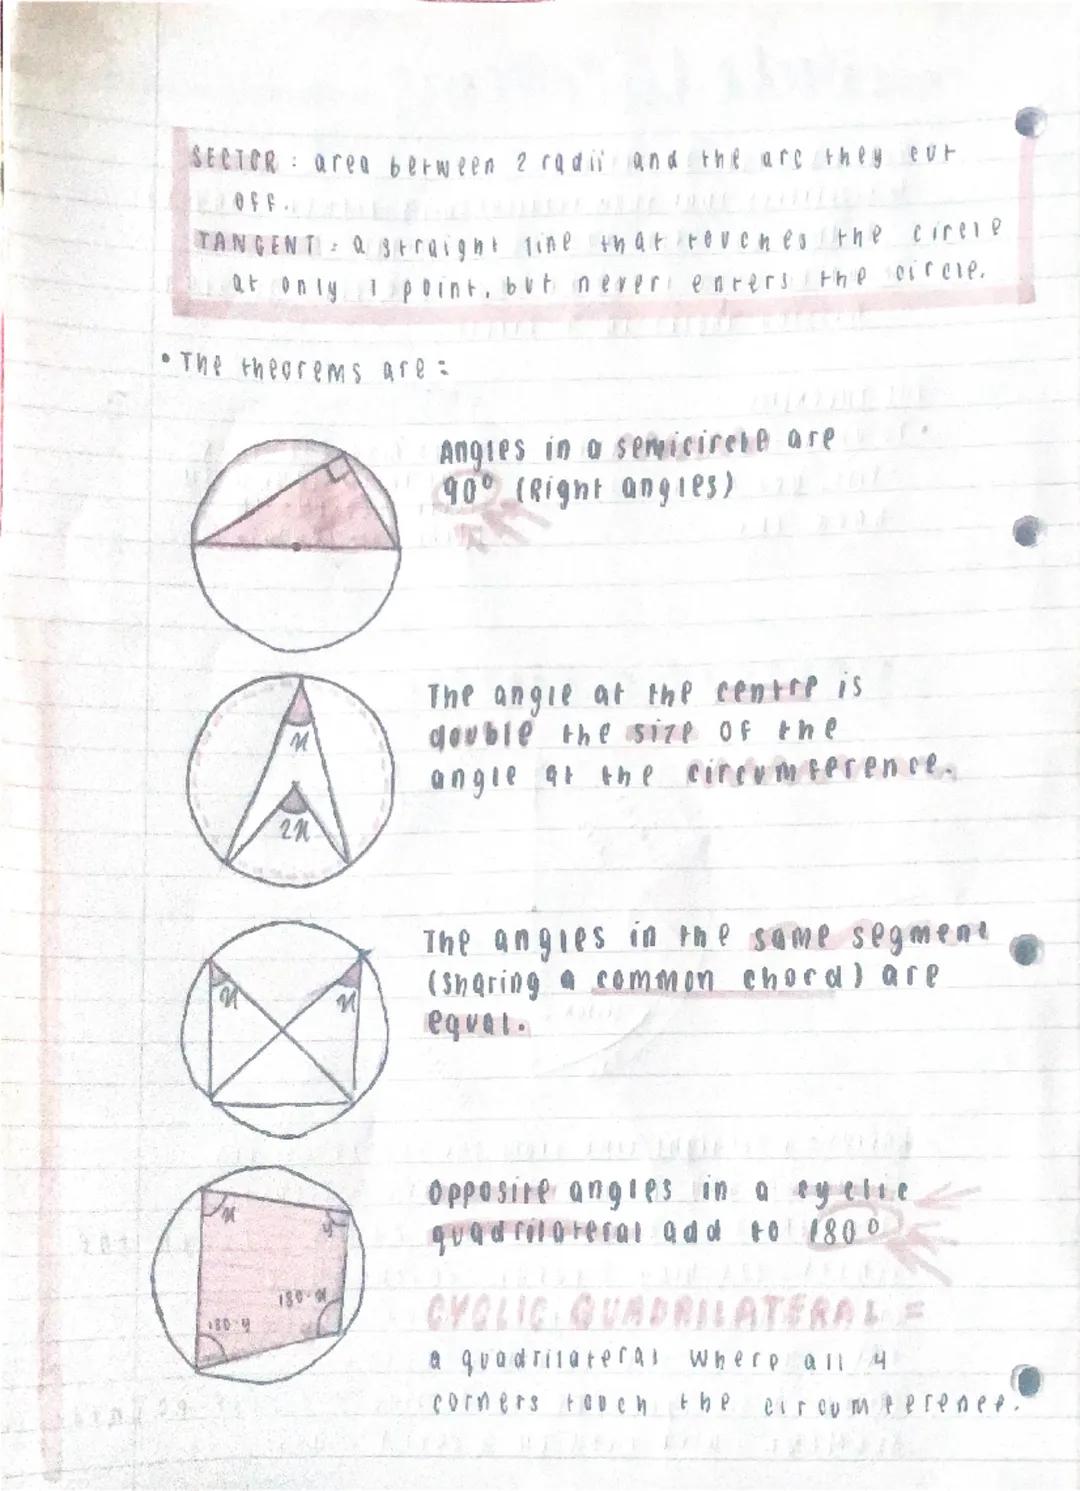 SECTOR : area between 2 radii and the arc they cut
off.
TANGENT : a straight line that touches the circle
at only 1 point, but never enters the circle.
• The theorems are :
Angles in a semicircle are
90° (Right angles)
x
The angle at the centre is
double the size of the
angle at the circumference.
2x
The angles in the same segment
(sharing a common chord) are
equal.
x
x
Opposite angles in a cyclic
quadrilateral add to 180°
x
y
180-x
180-y
CYCLIC QUADRILATERAL =
a quadrilateral where all 4
corners touch the circumference.